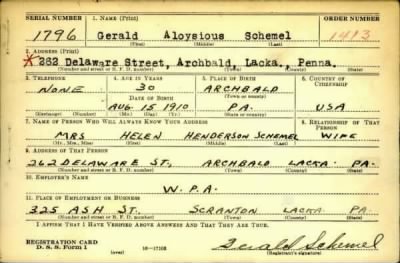 SERIAL NUMBER 1. NAME (Print) ORDER NUMBER
1796 Gerald Aloysious Schemel 1413
(First) (Middle) (Last)
2. ADDRESS (Print)
X 262 Delaware Street, Archbald, Lacka., Penna.
(Number and street or R. F. D. number) (Town) (County) (State)
3. TELEPHONE 4. AGE IN YEARS 5. PLACE OF BIRTH 6. COUNTRY OF CITIZENSHIP
NONE 30 ARCHBALD
DATE OF BIRTH (Town or county)
AUG. 15 1910 PA. USA
(Exchange) (No.) (Mo.) (Day) (Yr.) (State or country)
7. NAME OF PERSON WHO WILL ALWAYS KNOW YOUR ADDRESS 8. RELATIONSHIP OF THAT PERSON
MRS HELEN HENDERSON SCHEMEL WIFE
(Mr., Mrs., Miss) (First) (Middle) (Last)
9. ADDRESS OF THAT PERSON
262 DELAWARE ST, ARCHBALD LACKA. PA.
(Number and street or R. F. D. number) (Town) (County) (State)
10. EMPLOYER'S NAME
W.P.A.
11. PLACE OF EMPLOYMENT OR BUSINESS
325 ASH ST. SCRANTON LACKA PA
(Number and street or R. F. D. number) (Town) (County) (State)
I AFFIRM THAT I HAVE VERIFIED ABOVE ANSWERS AND THAT THEY ARE TRUE.
REGISTRATION CARD
D. S. S. Form 1 (over) 16—17105 Gerald Schemel
(Registrant's signature)